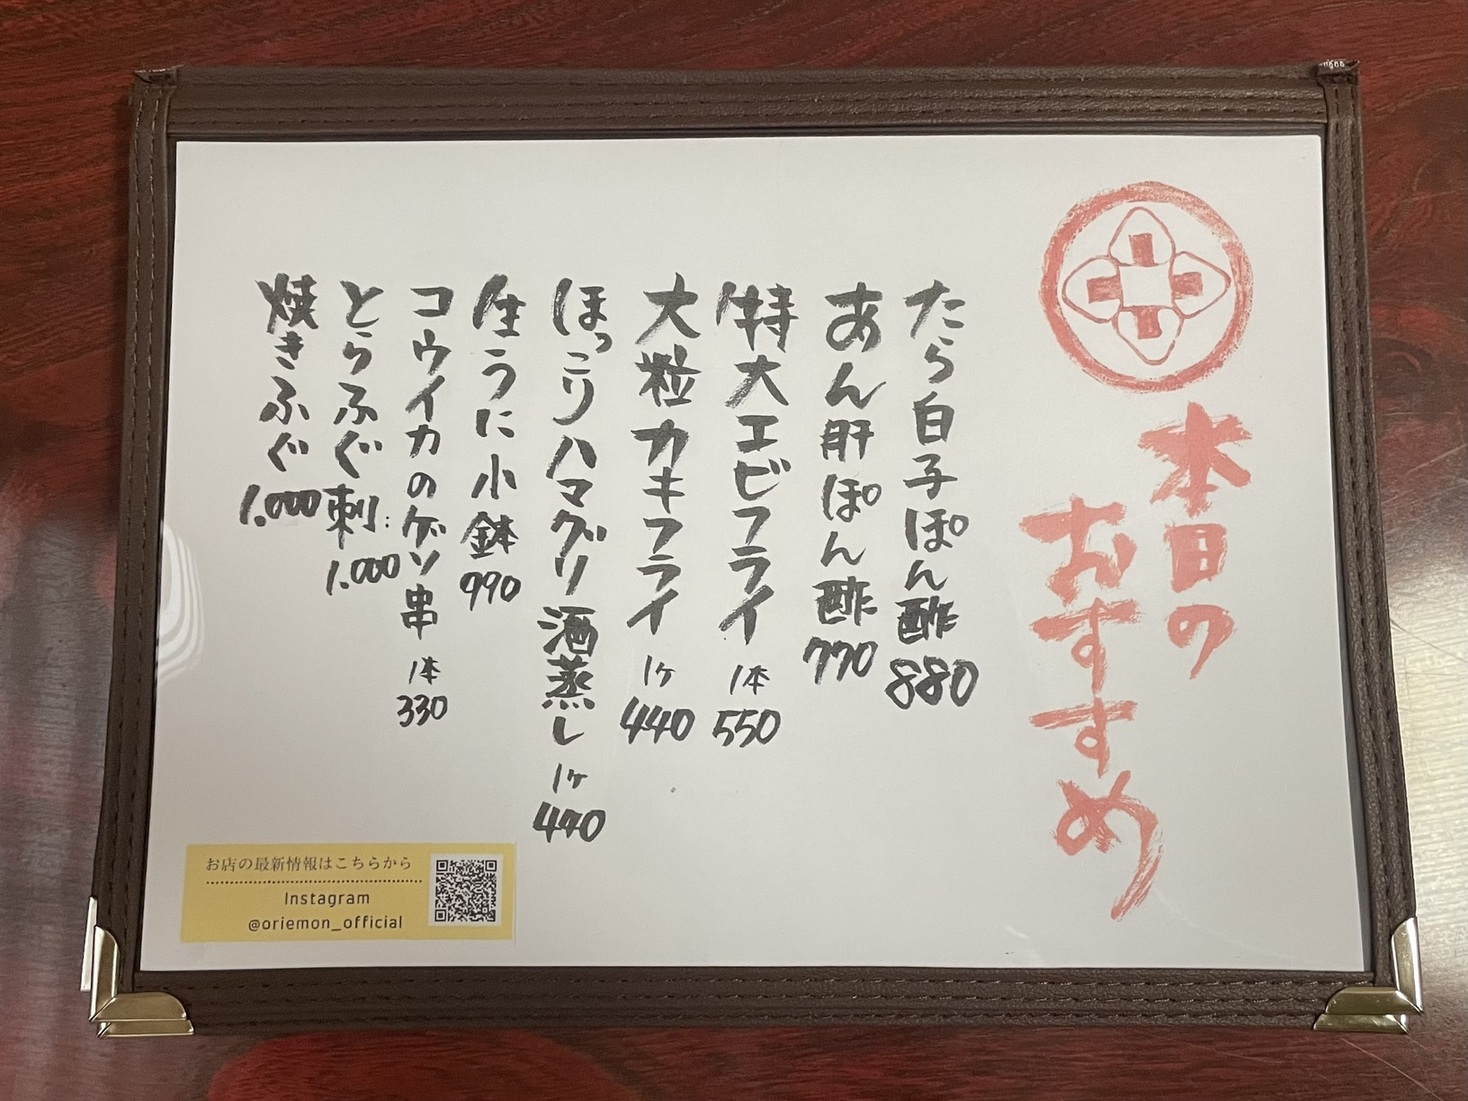 本日の
おすすめ
たら白子ぽん酢 880
あん肝ぽん酢 770
特大エビフライ 1本 550
大粒カキフライ 1ヶ 440
ほっこりハマグリ酒蒸し 1ヶ 440
生うに小鉢 990
コウイカのゲソ串 1本 330
とらふぐ刺 1.000
焼きふぐ 1.000
お店の最新情報はこちらから
Instagram
@oriemon_official